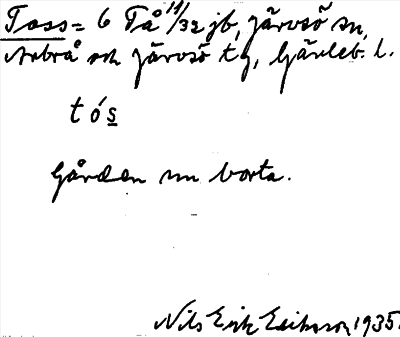 Tass = 6 Tå 11/32 jb, Järvsö sn,
Arbrå och Järvsö tg, Gävleb. l.
tó s̲
Gården nu borta.
Nils Erik Eriksson 1935.